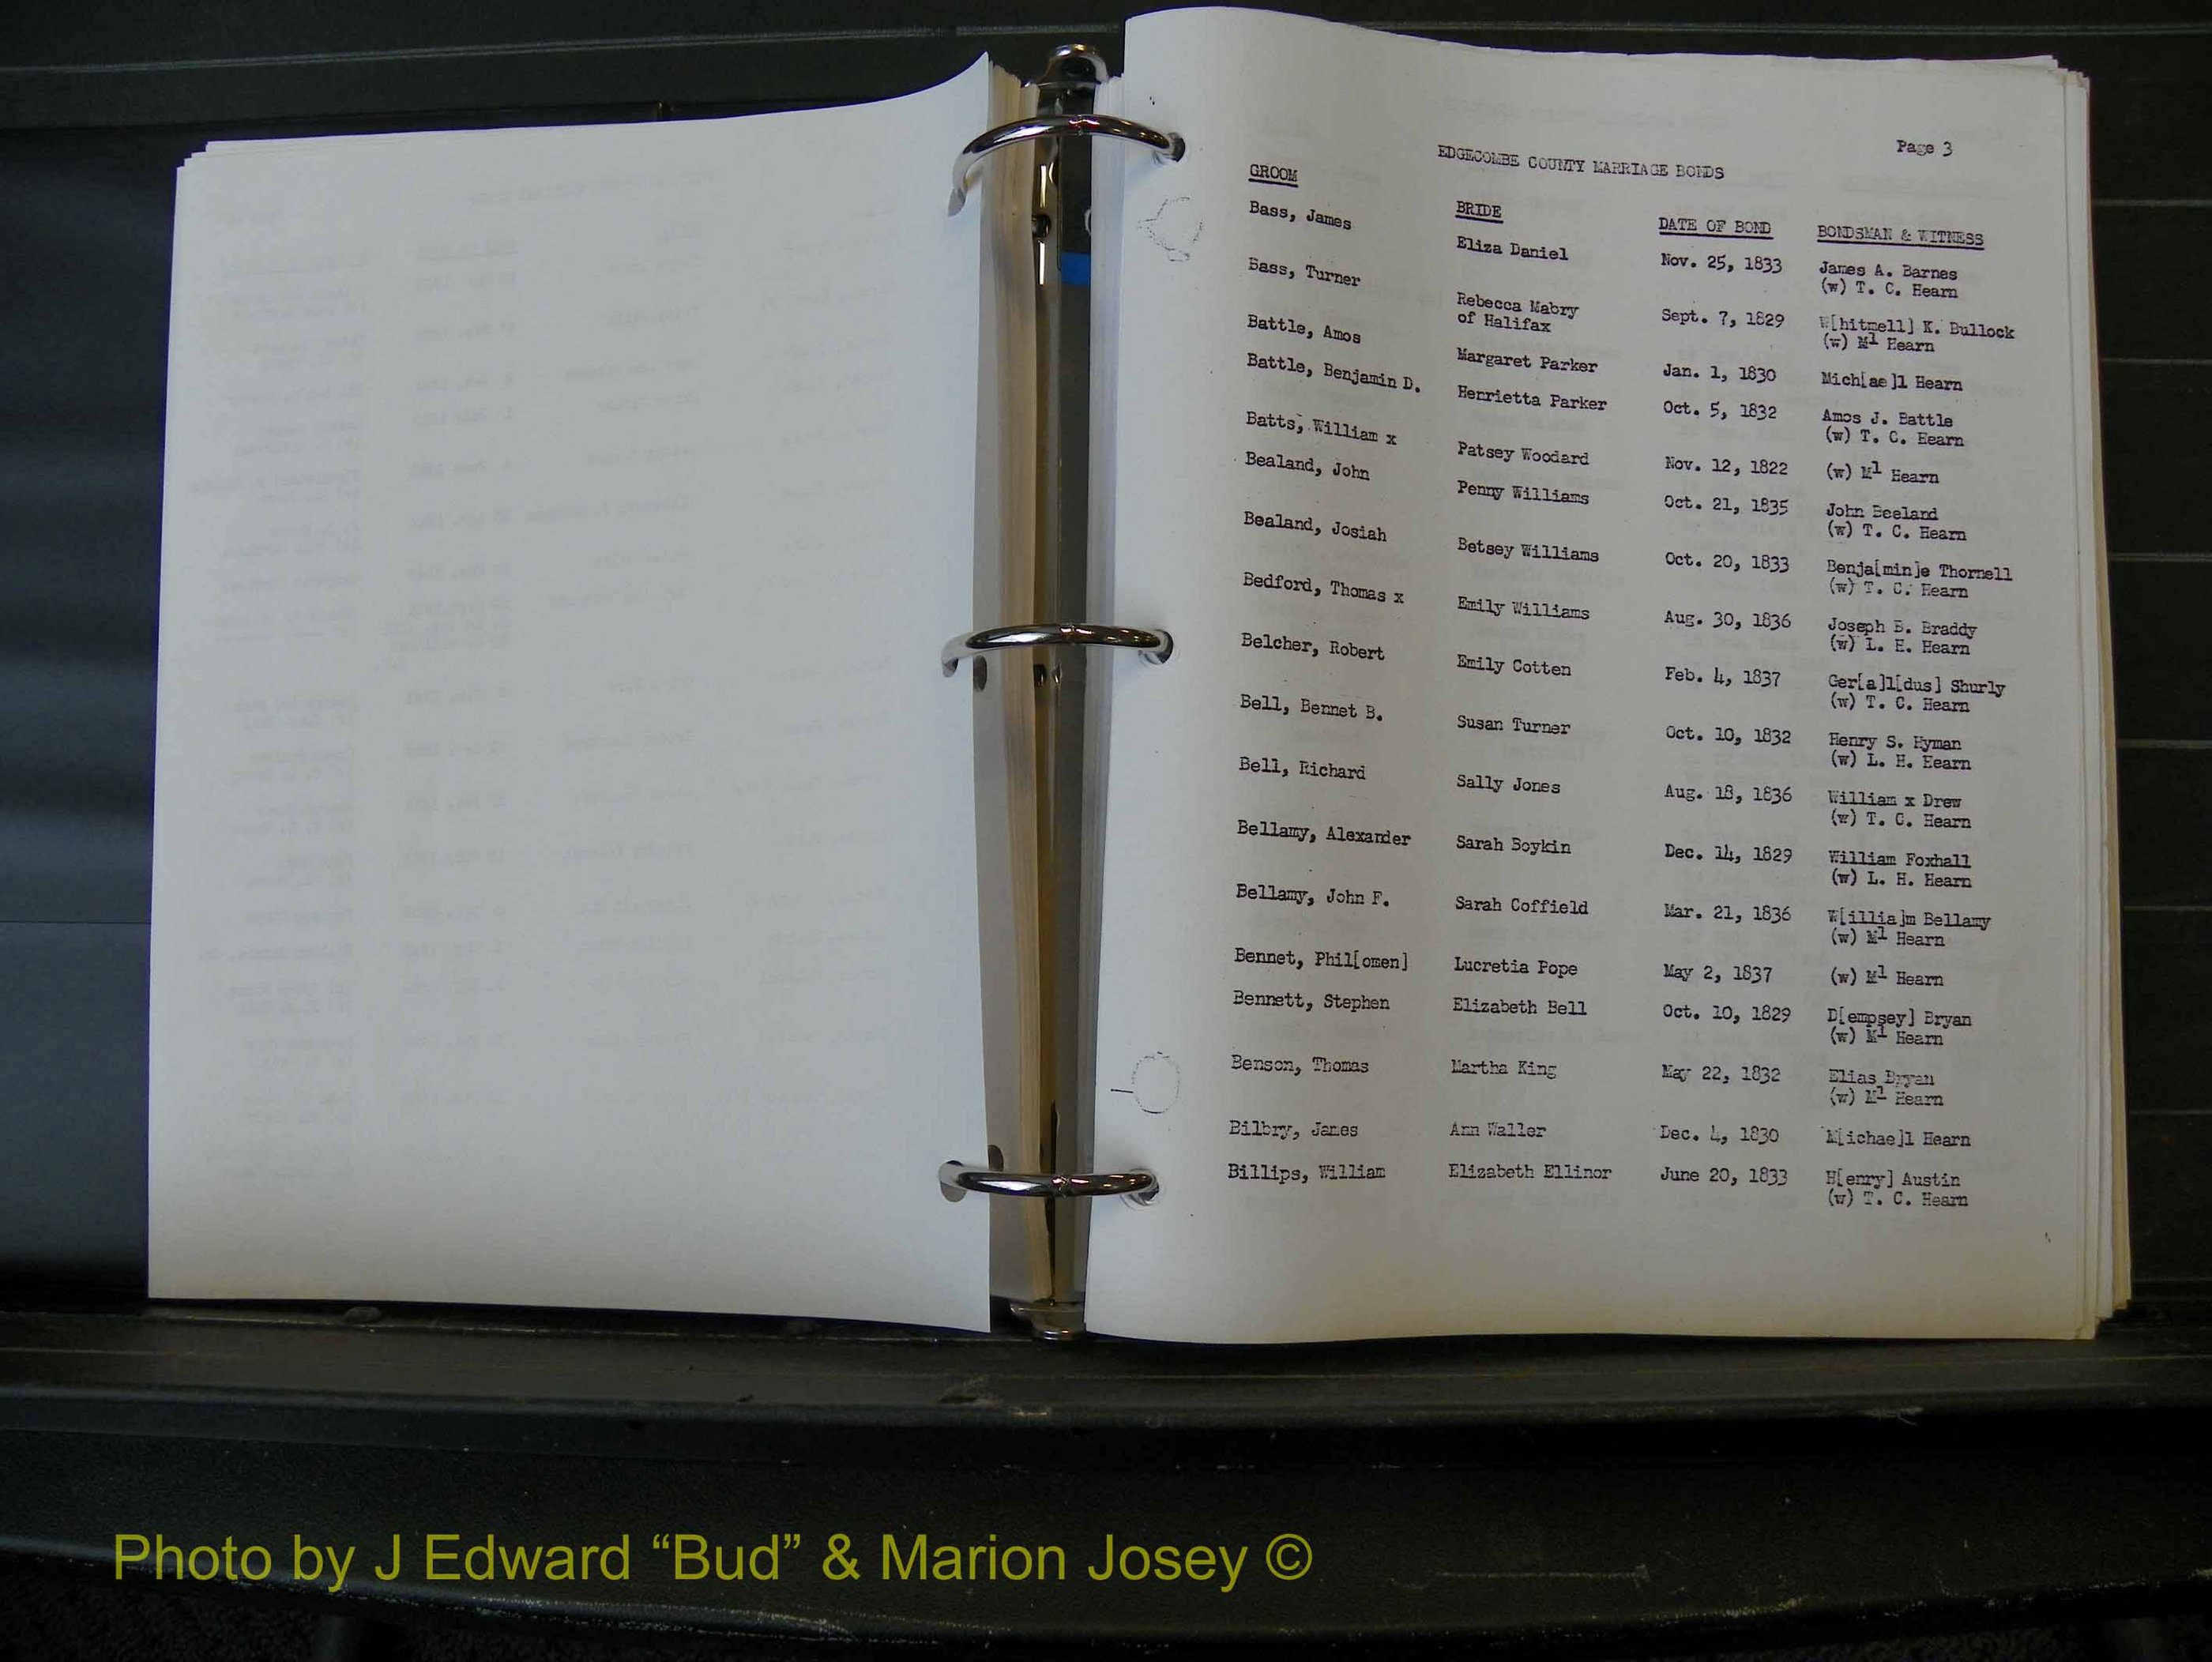 Page 3
EDGECOMBE COUNTY MARRIAGE BONDS
GROOM BRIDE DATE OF BOND BONDSMAN & WITNESS
Bass, James Eliza Daniel Nov. 25, 1833 James A. Barnes
(w) T. C. Hearn
Bass, Turner Rebecca Mabry Sept. 7, 1829 W[hitmell] K. Bullock
of Halifax (w) Ml Hearn
Battle, Amos Margaret Parker Jan. 1, 1830 Mich[ae]l Hearn
Battle, Benjamin D. Henrietta Parker Oct. 5, 1832 Amos J. Battle
(w) T. C. Hearn
Batts, William x Patsey Woodard Nov. 12, 1822 (w) Ml Hearn
Bealand, John Penny Williams Oct. 21, 1835 John Beeland
(w) T. C. Hearn
Bealand, Josiah Betsey Williams Oct. 20, 1833 Benja[min]e Thornell
(w) T. C. Hearn
Bedford, Thomas x Emily Williams Aug. 30, 1836 Joseph B. Braddy
(w) L. H. Hearn
Belcher, Robert Emily Cotten Feb. 4, 1837 Ger[a]l[dus] Shurly
(w) T. C. Hearn
Bell, Bennet B. Susan Turner Oct. 10, 1832 Henry S. Hyman
(w) L. H. Hearn
Bell, Richard Sally Jones Aug. 18, 1836 William x Drew
(w) T. C. Hearn
Bellamy, Alexander Sarah Boykin Dec. 14, 1829 William Foxhall
(w) L. H. Hearn
Bellamy, John F. Sarah Coffield Mar. 21, 1836 W[illia]m Bellamy
(w) Ml Hearn
Bennet, Phil[omen] Lucretia Pope May 2, 1837 (w) Ml Hearn
Bennett, Stephen Elizabeth Bell Oct. 10, 1829 D[empsey] Bryan
(w) Ml Hearn
Benson, Thomas Martha King May 22, 1832 Elias Bryan
(w) Ml Hearn
Bilbry, James Ann Waller Dec. 4, 1830 M[ichae]l Hearn
Billips, William Elizabeth Ellinor June 20, 1833 H[enry] Austin
(w) T. C. Hearn
Photo by J Edward “Bud” & Marion Josey ©